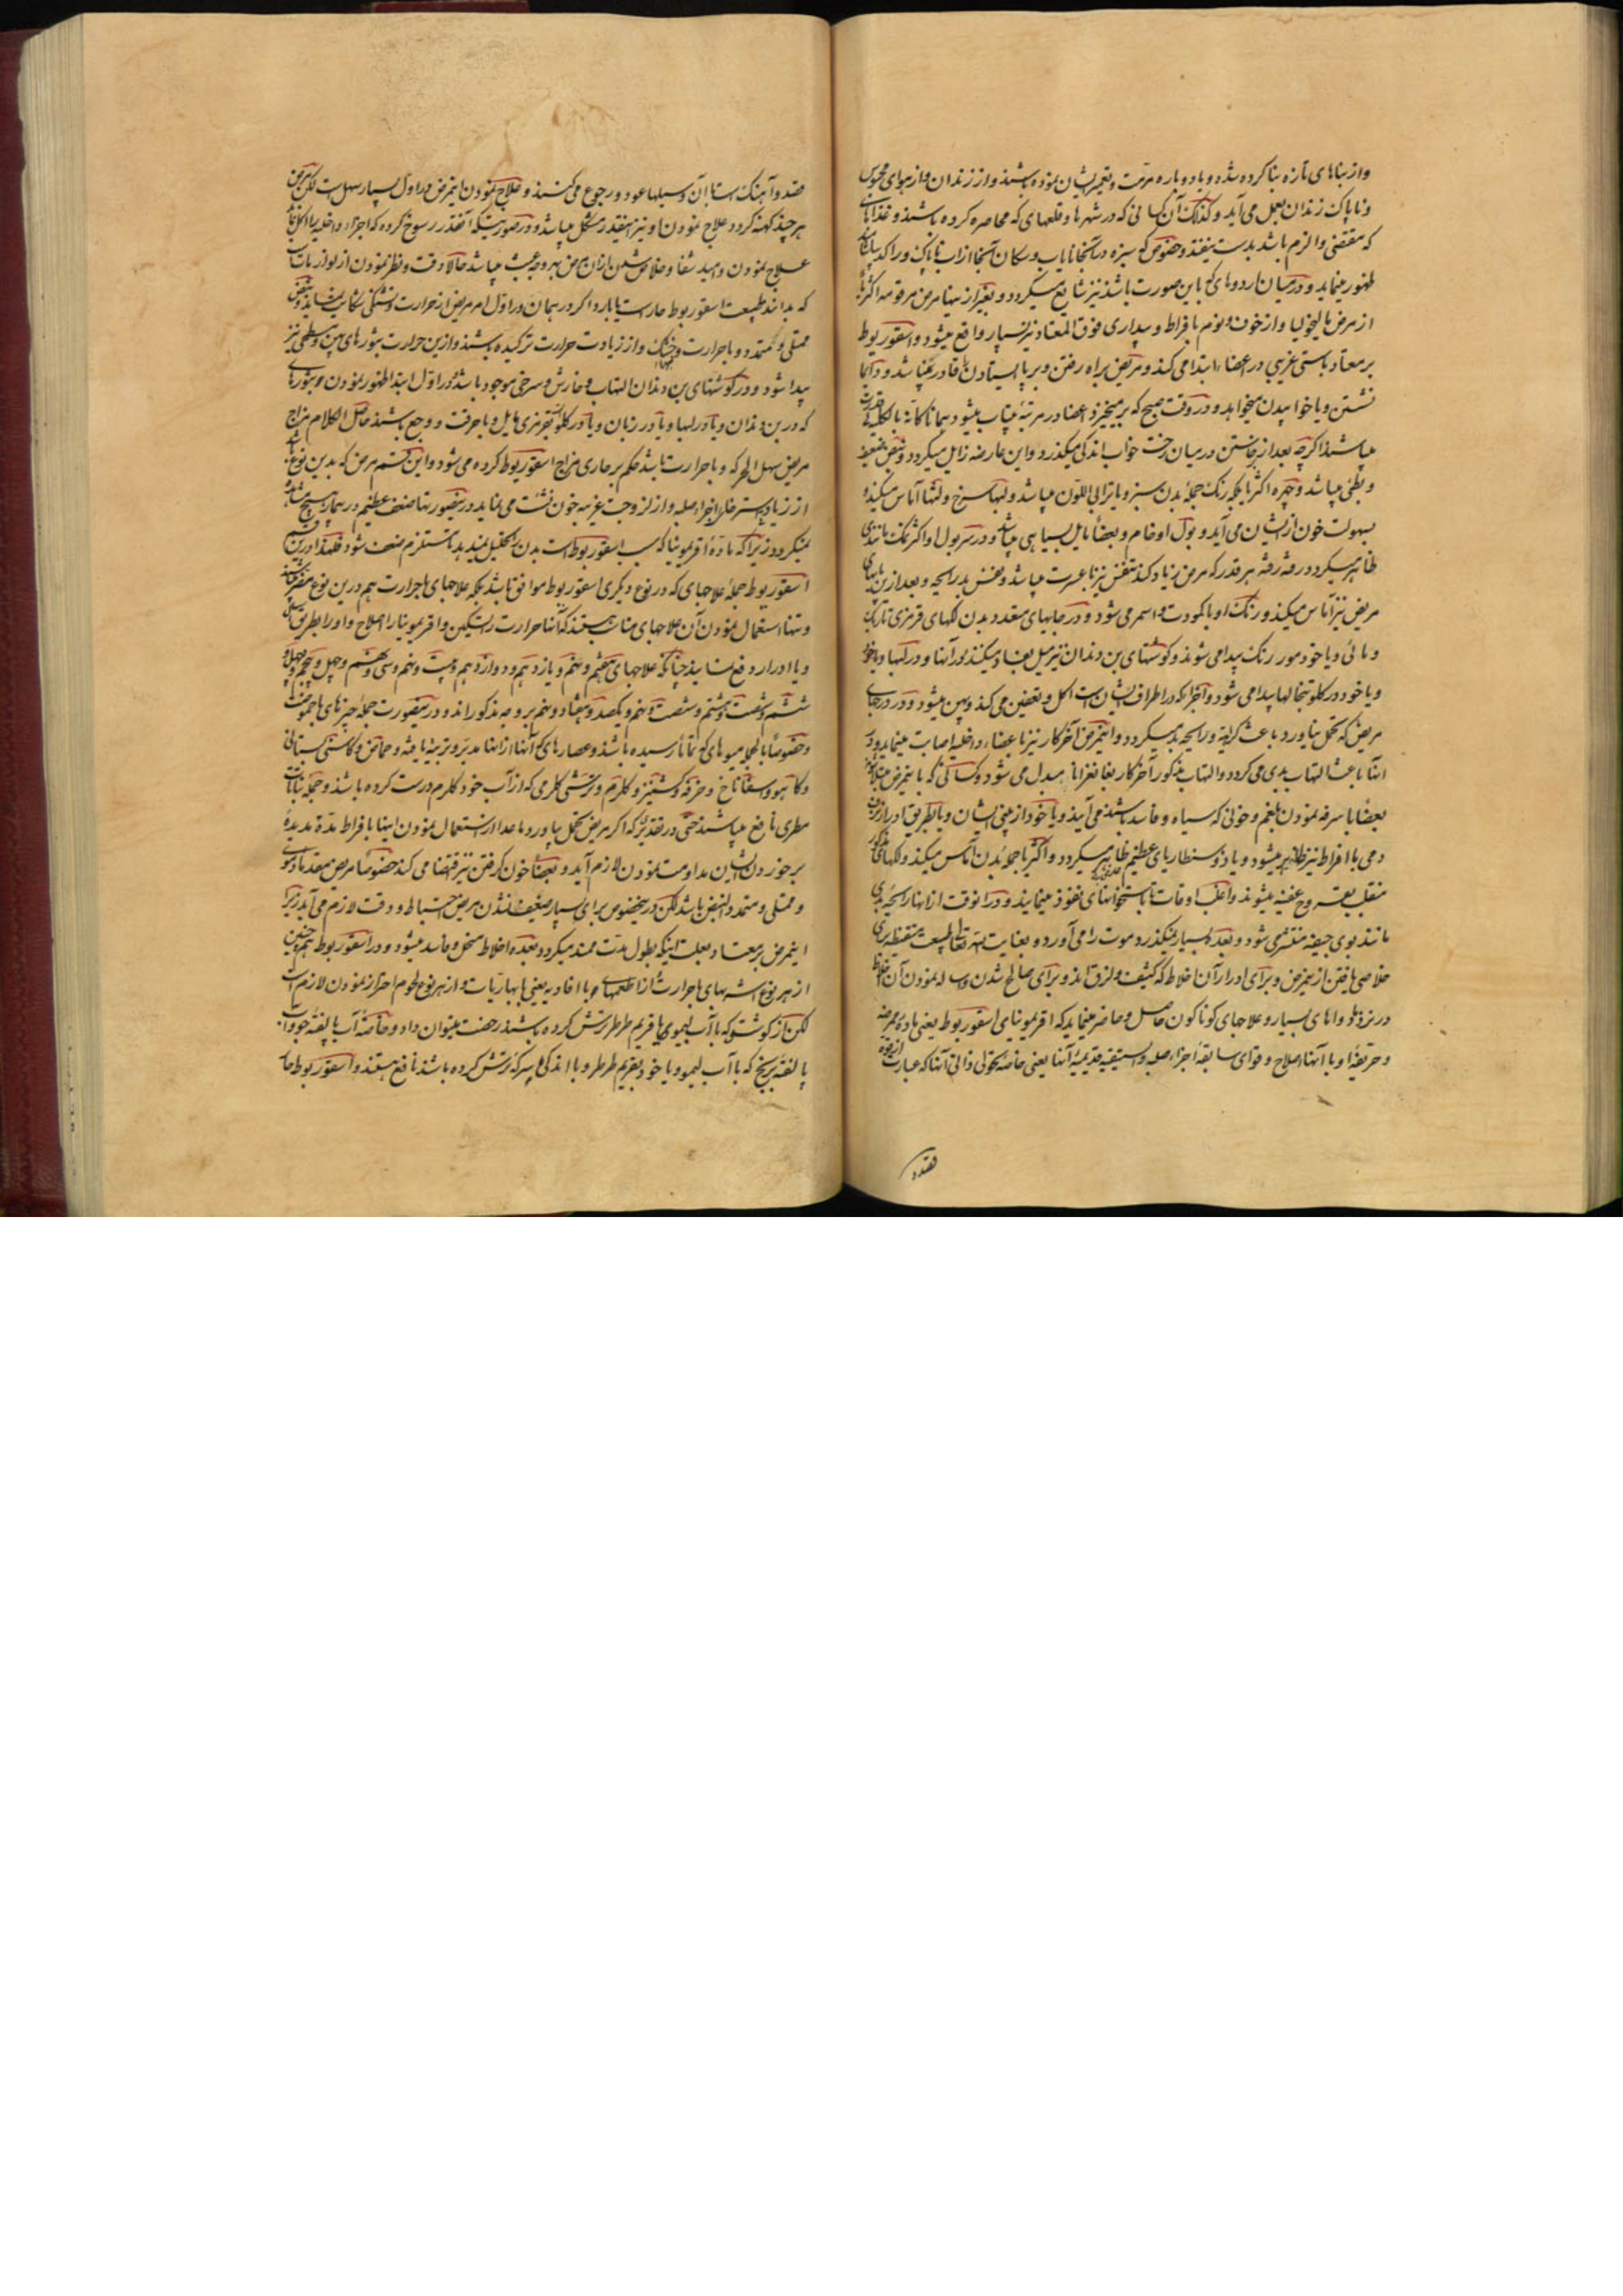 واز بناهای تازه بنا کرده شده و یا دوباره مرمت و تعمیر ایشان نموده باشند واز زندان واز هوای محبوس
و ناپاک زندان بعمل می آید و کذلک آن کسانی که در شهرها و قلعهای که محاصره کرده باشند و غذاهای
که مقتضی و الزم باشد بدست نیفتد و خصوص که سبزه در آنجا نایاب و سکان آنجا از آب ناپاک و راکد
ظهور مینماید و در میان اردوهای که باین صورت باشند نیز شایع میگردد و بغیر از اینها مرض مرقومه اکثر
از مرض مالیخولیا و از خوف و نوم بافراط و بیداری فوق المعتاد نیز بسیار واقع میشود و اسقوربوط
بر معتاد با سستی غریبی در اعضا ابتدا می کند و مریض براه رفتن و برپا ایستادن قادر نمیباشد و دائما
نشستن و یا خوابیدن میخواهد و در وقت صبح که بر میخیزد اعضا در مرتبه بیتاب میشود همانا کانه بالکلیه
میباشند اگرچه بعد از برخاستن در میان رخت خواب اندکی میگذرد و این عارضه زایل میگردد و نبض ضعیف
و بطئ میباشد و چهره اکثر بلکه رنک جمله بدن سبز و یا ترابی اللون میباشد و لبها سرخ و لثها آماس میکند
بسهولت خون از ایشان می آید و بول او خام و بعضا مایل بسیاهی میباشد و در سر بول او اکثر نمک مانندی
ظاهر میگردد رفته رفته هر قدر که مرض زیاد کند تنفس نیز با عسرت میباشد و نفس بد رایحه و بعد ازین پایهای
مریض نیز آماس میکند و رنک او با کمودت و اسمر می شود و در جابهای متعدد بدن لکهای قرمزی تاریک
و مائی و یا خود مور رنک پیدا می شوند و گوشتهای بن دندان نیز میل بفساد میکند بورانها و در لبها و یا خود
و یا خود در کلو تبخالها پیدا می شود و آنچرا که در اطراف ایشان است اکل و تعفین می کند و پهن میشود و در جای
مریض که تحمل نیاورد باعث کریه و رایحه بد میگردد و اینمرض آخر کار نیز باعضاء داخلیه اصابت مینماید و در
اثنا باعث التهاب بدی می کردد و التهاب مذکور آخر کار بغانغرانا مبدل می شود و کسانی که باینمرض مبتلا
بعضا با سرفه نمودن بلغم و خونی که سیاه و فاسد باشند می آیند و یا خود از بینی ایشان و یا بطریق ادرار
دمی با افراط نیز ظاهر میشود و یا ذوسنطاریای عظیم ظاهر میگردد و اکثر جمله بدن آماس میکند و لکهای مذکور
منقلب بقروح عفنیه میشوند و اغلب اوقات تا باستخوانهای نفوذ مینمایند و در آنوقت از آنها رایحه بدی
مانند بوی جیفه منتشر می شود و بعده بسیار نمیگذرد موت را می آورد و بعنایت الله تعالی طبیعت متیقظه برای
خلاصی یافتن از اینمرض و برای ادرار آن اخلاط که کثیف و لزق اند و برای صالح شدن و ساله نمودن آن اخلاط
در نزد ما دواهای بسیار و علاجهای کوناکون حاصل و حاضر مینماید که اقریمونیای اسقوربوط یعنی ماده ممرضه
و حریفهٔ او با آنها اصلاح و قوای سابقه اجزاء صلبه و استیقیه قدیمیهٔ آنها یعنی خاصه تحولی ذاتی آنها که عبارت از قوه
قصد و
قصد و آهنک است با آن وسیلها عود و رجوع می کنند و علاج نمودن اینمرض در اول بسیار سهل است لکن مرض
هر چند کهنه کردد علاج نمودن او نیز آنقدر مشکل میباشد و در صورتیکه آنقدر رسوخ کرده که اجزاء داخلیه را اکل
علاج نمودن و امید شفا و خلاص شدن از آن مرض بهر وجه عبث میباشد حالا دقت و نظر نمودن از لوازمات
که بدانند طبیعت اسقوربوط حار است یا بارد اکر در همان در اول امر مریض از حرارت و تشنکی شکایت نماید و نبض
ممتلی و متمدد و با حرارت و خشک و از زیادت حرارت ترکیده باشند و ازین حرارت بثورهای پهن و سطحی نیز
پیدا شود و در گوشتهای بن دندان التهاب و خارش و سرخی موجود باشد و در اول ابتدا ظهور نمودن بثورهای
که در بن دندان و یا در لبها و یا در زبان و یا در کلو بقرمزی مایل و با حرقت و وجع باشند حاصل الکلام مزاج
مریض سهل الحرکه و با حرارت باشد حکم بر حاری مزاج اسقوربوط کرده می شود و این قسم مرض که بدین نوع
از زیاد سستر خلل اجزاء صلبه و از لزوجت غریبه خون نشئت می نماید در اینصورتها ضعف عظیم در بیمار هیچ مشاهده
نمیگردد زیرا که ماده اقریمونیا که سبب اسقوربوط است بدن را تحلیل نمیدهد تا مستلزم ضعف شود فلهذا درین قسم
اسقوربوط جمله علاجهای که در نوع دیگری اسقوربوط موافق باشد بلکه علاجهای با حرارت هم درین نوع مضر میباشد
و تنها استعمال نمودن آن علاجهای مناسب هستند که آنها حرارت را تسکین و اقریمونیا را اصلاح و او را بطریق
و یا ادرار دفع نمایند چنانکه علاجهای هفتم و نهم و یازدهم و دوازدهم و بیست و نهم و سی و هفتم و چهل و پنجم و چهل و
ششم و شصت و هشتم و شصت و نهم و یکصد و هفتاد و نهم بر وجه مذکوراند و در اینصورت جمله چیزهای با حموضت
و خصوصا بالجمله میوهای که تماما رسیده باشند و عصارهای که آنها از آنها مدبر و ترتیب یافته و حماض و کاسنی بستانی
و کاهو و سفاناخ و خرفه و کشنیز و کلرم و ترشی کلرمی که از آب خود کلرم درست کرده باشند و جمله نباتات
مطری نافع میباشند حتی در تقدیر که اکر مریض تحمل بیاورد ماعدا از استعمال نمودن اینها بافراط مدة مدیده
بر خوردن ایشان مداومت نمودن لازم آید و بعضا خون گرفتن نیز اقتضا می کند خصوصا مریض معتاد دموی
و ممتلی و متمدد النبض باشد لکن در اینخصوص برای بسیار ضعیف نشدن مریض احتیاط و دقت لازم می آید زیرا
اینمرض بر معتاد بعلت اینکه بطول مدت ممتد میکردد بعده اخلاط منحل و فاسد میشود و در اسقوربوط همچنین
از هر نوع اشربهای با حرارت از اطعمهای با افاویه یعنی بابهاریات و از هر نوع لحوم احتراز نمودن لازم است
لکن از گوشتی که با آب لیمو یا قریم طرطر ترش کرده باشند رخصت میتوان داد و خاصهٔ آب یا لقفه جو و آب
یا لقفه برنج که با آب لیمو و یا خود بقریم طرطر و یا اندکی سرکه ترش کرده باشند نافع هستند و اسقوربوط حار